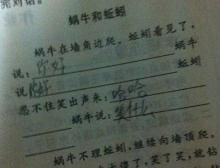 完对话。
蜗牛和蚯蚓
蜗牛在墙角边爬，蚯蚓看见了，
说：你好
说你好 蜗牛
忍不住笑出声来：哈哈 蚯蚓
蜗牛说：笑什么
蜗牛不理蚯蚓，继续向墙顶爬，
得了，笑了笑，说